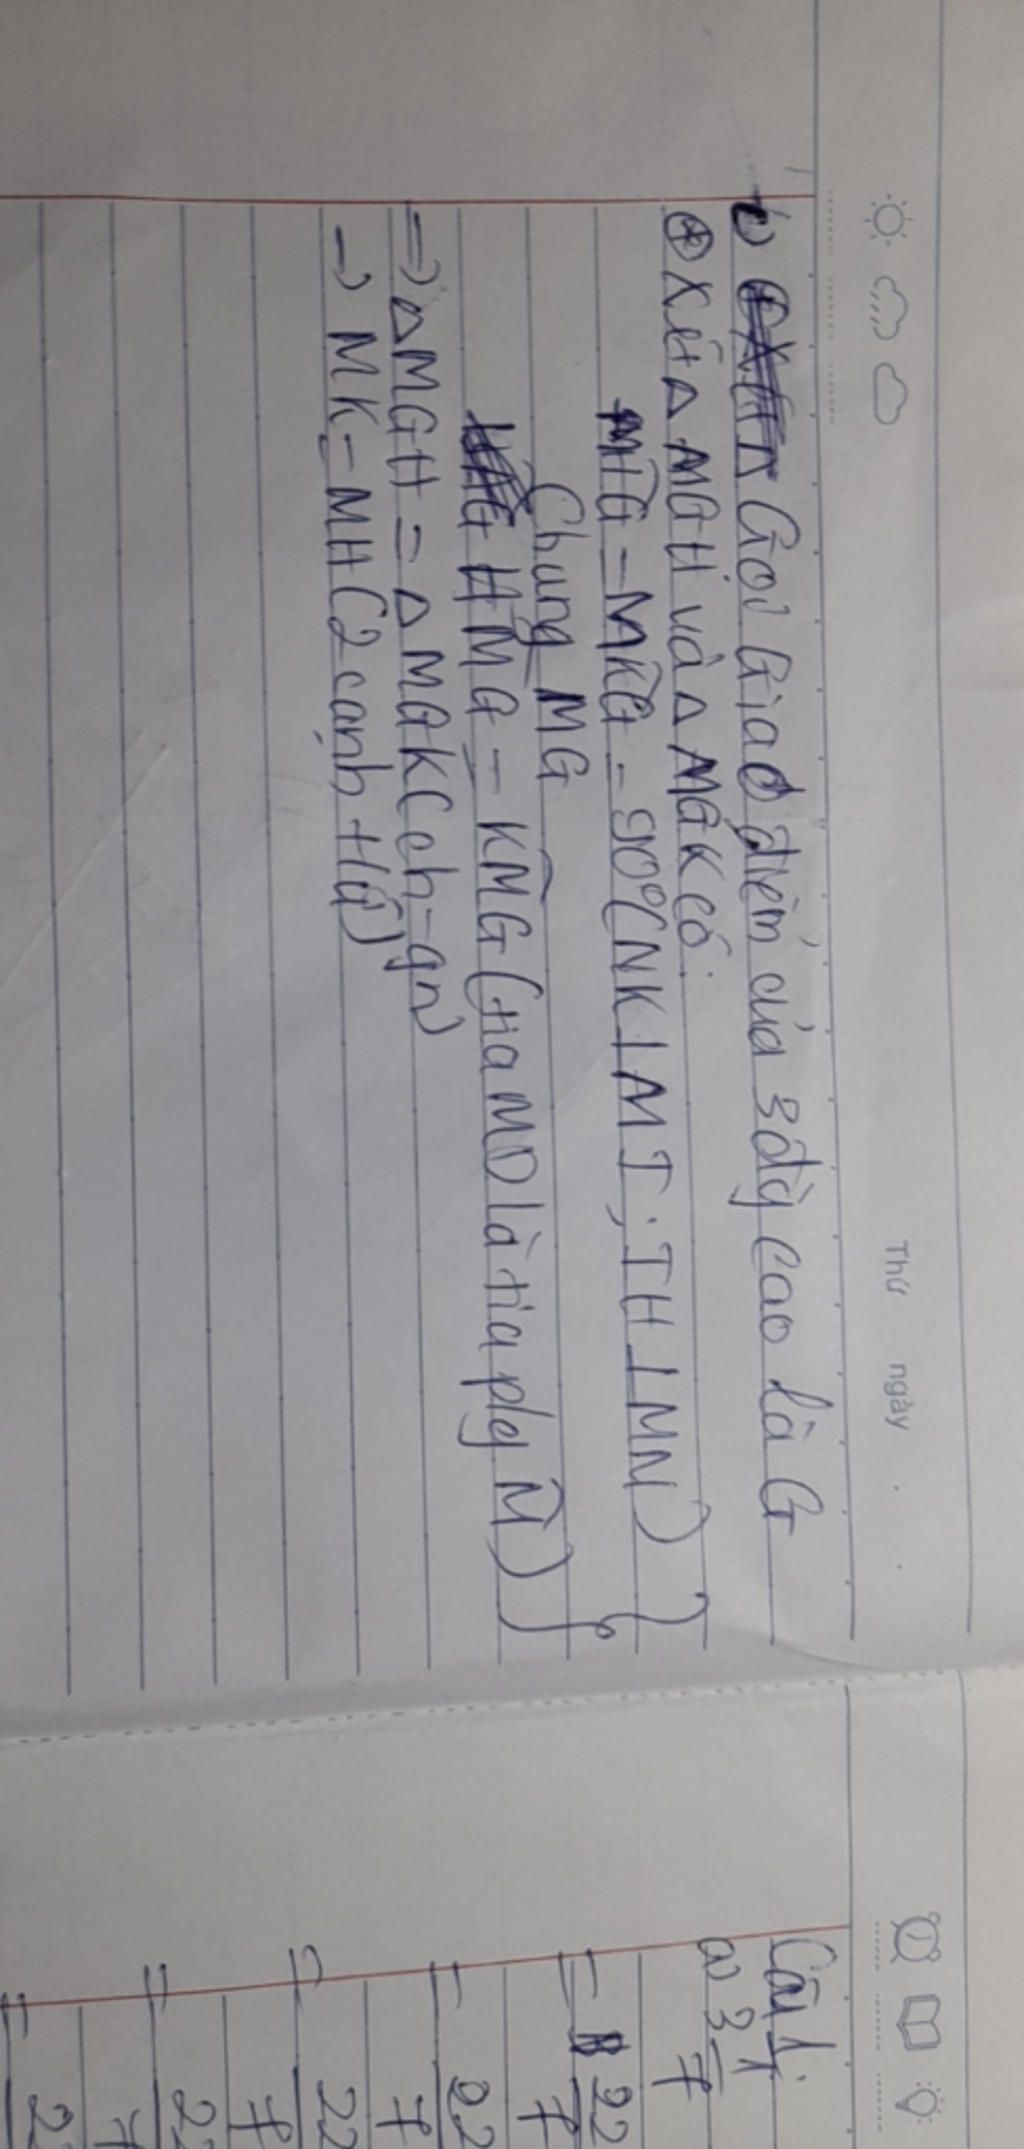 Thứ ngày
b) Gọi Giao điểm của 3 đg cao là G
⊕ Xét △ MGH và △ MGK có:
MHG = MKG = 90° (NK ⊥ MT; TH ⊥ MN)
Chung MG
HMG = KMG (tia MD là tia plg M)
=> △MGH = △MGK (ch-gn)
→ MK = MH (2 cạnh tứ)
Câu 1:
a) 3 1/7
= 22/7
= 22/7
= 22/7
= 22/7